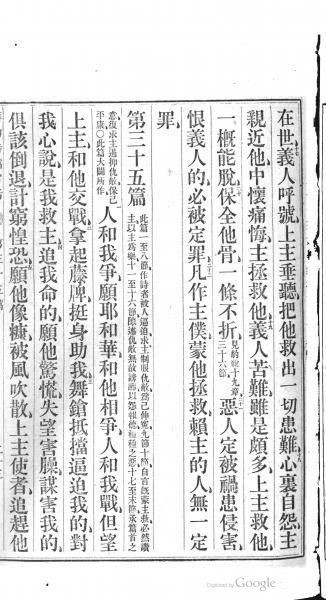 在世義人呼號上主垂聽把他救出一切患難心裏自怨主
親近他中懷痛悔主拯救他義人苦難雖是頗多上主救他
一概能脫保全他骨一條不折見約翰十九章三十六節惡人定被禍患侵害
恨義人的必被定罪凡作主僕蒙他拯救賴主的人無一定
罪
第三十五篇
此篇一至八節作詩者被人逼迫求主制服仇敵爲己伸冤九節十節自言既蒙主救必然讚
主以主爲樂十一至十六節陳述仇敵無故謗讟以怨報德種種之惡十七至末節承篇首之
意復求主遏抑仇敵保己
平康○此篇大闢所作
人和我爭願耶和華和他相爭人和我戰但望
上主和他交戰拿起藤牌挺身助我舞鎗抵擋逼迫我的對
我心說是我救主追我命的願他驚慌失望害臊謀害我的
俱該倒退訌窮惶恐願他像糠被風吹散上主使者追趕他
Digitized by Google